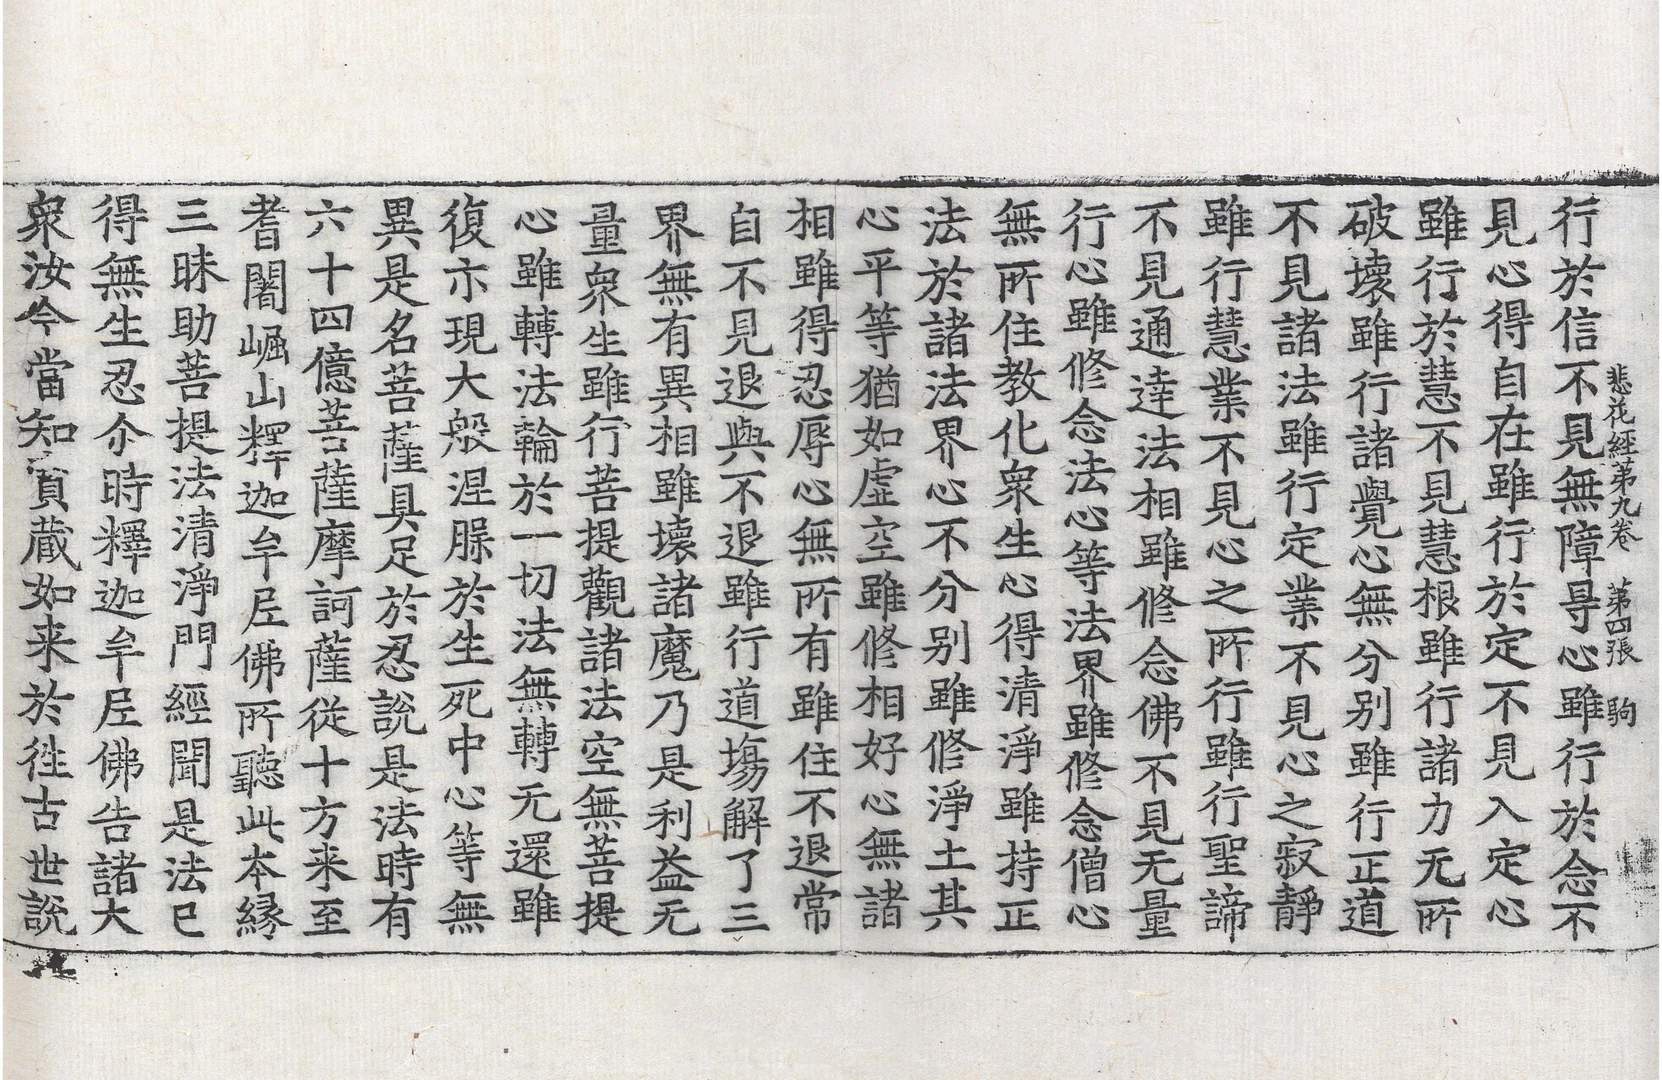 悲花経苐九卷　苐四張　駒
行於信不見無障㝵心雖行於念不
見心得自在雖行於定不見入定心
雖行於慧不見慧根雖行諸力无所
破壞雖行諸覺心無分別雖行正道
不見諸法雖行定業不見心之寂靜
雖行慧業不見心之所行雖行聖諦
不見通達法相雖修念佛不見无量
行心雖修念法心等法界雖修念僧心
無所住教化衆生心得清淨雖持正
法於諸法界心不分別雖修淨土其
心平等猶如虛空雖修相好心無諸
相雖得忍辱心無所有雖住不退常
自不見退與不退雖行道場解了三
界無有異相雖壞諸魔乃是利益无
量衆生雖行菩提觀諸法空無菩提
心雖轉法輪於一切法無轉无還雖
復示現大般涅槃於生死中心等無
異是名菩薩具足於忍說是法時有
六十四億菩薩摩訶薩從十方来至
耆闍崛山釋迦牟尼佛所聽此本緣
三昧助菩提法清淨門經聞是法已
得無生忍尒時釋迦牟尼佛告諸大
衆汝今當知寶藏如来於往古世說